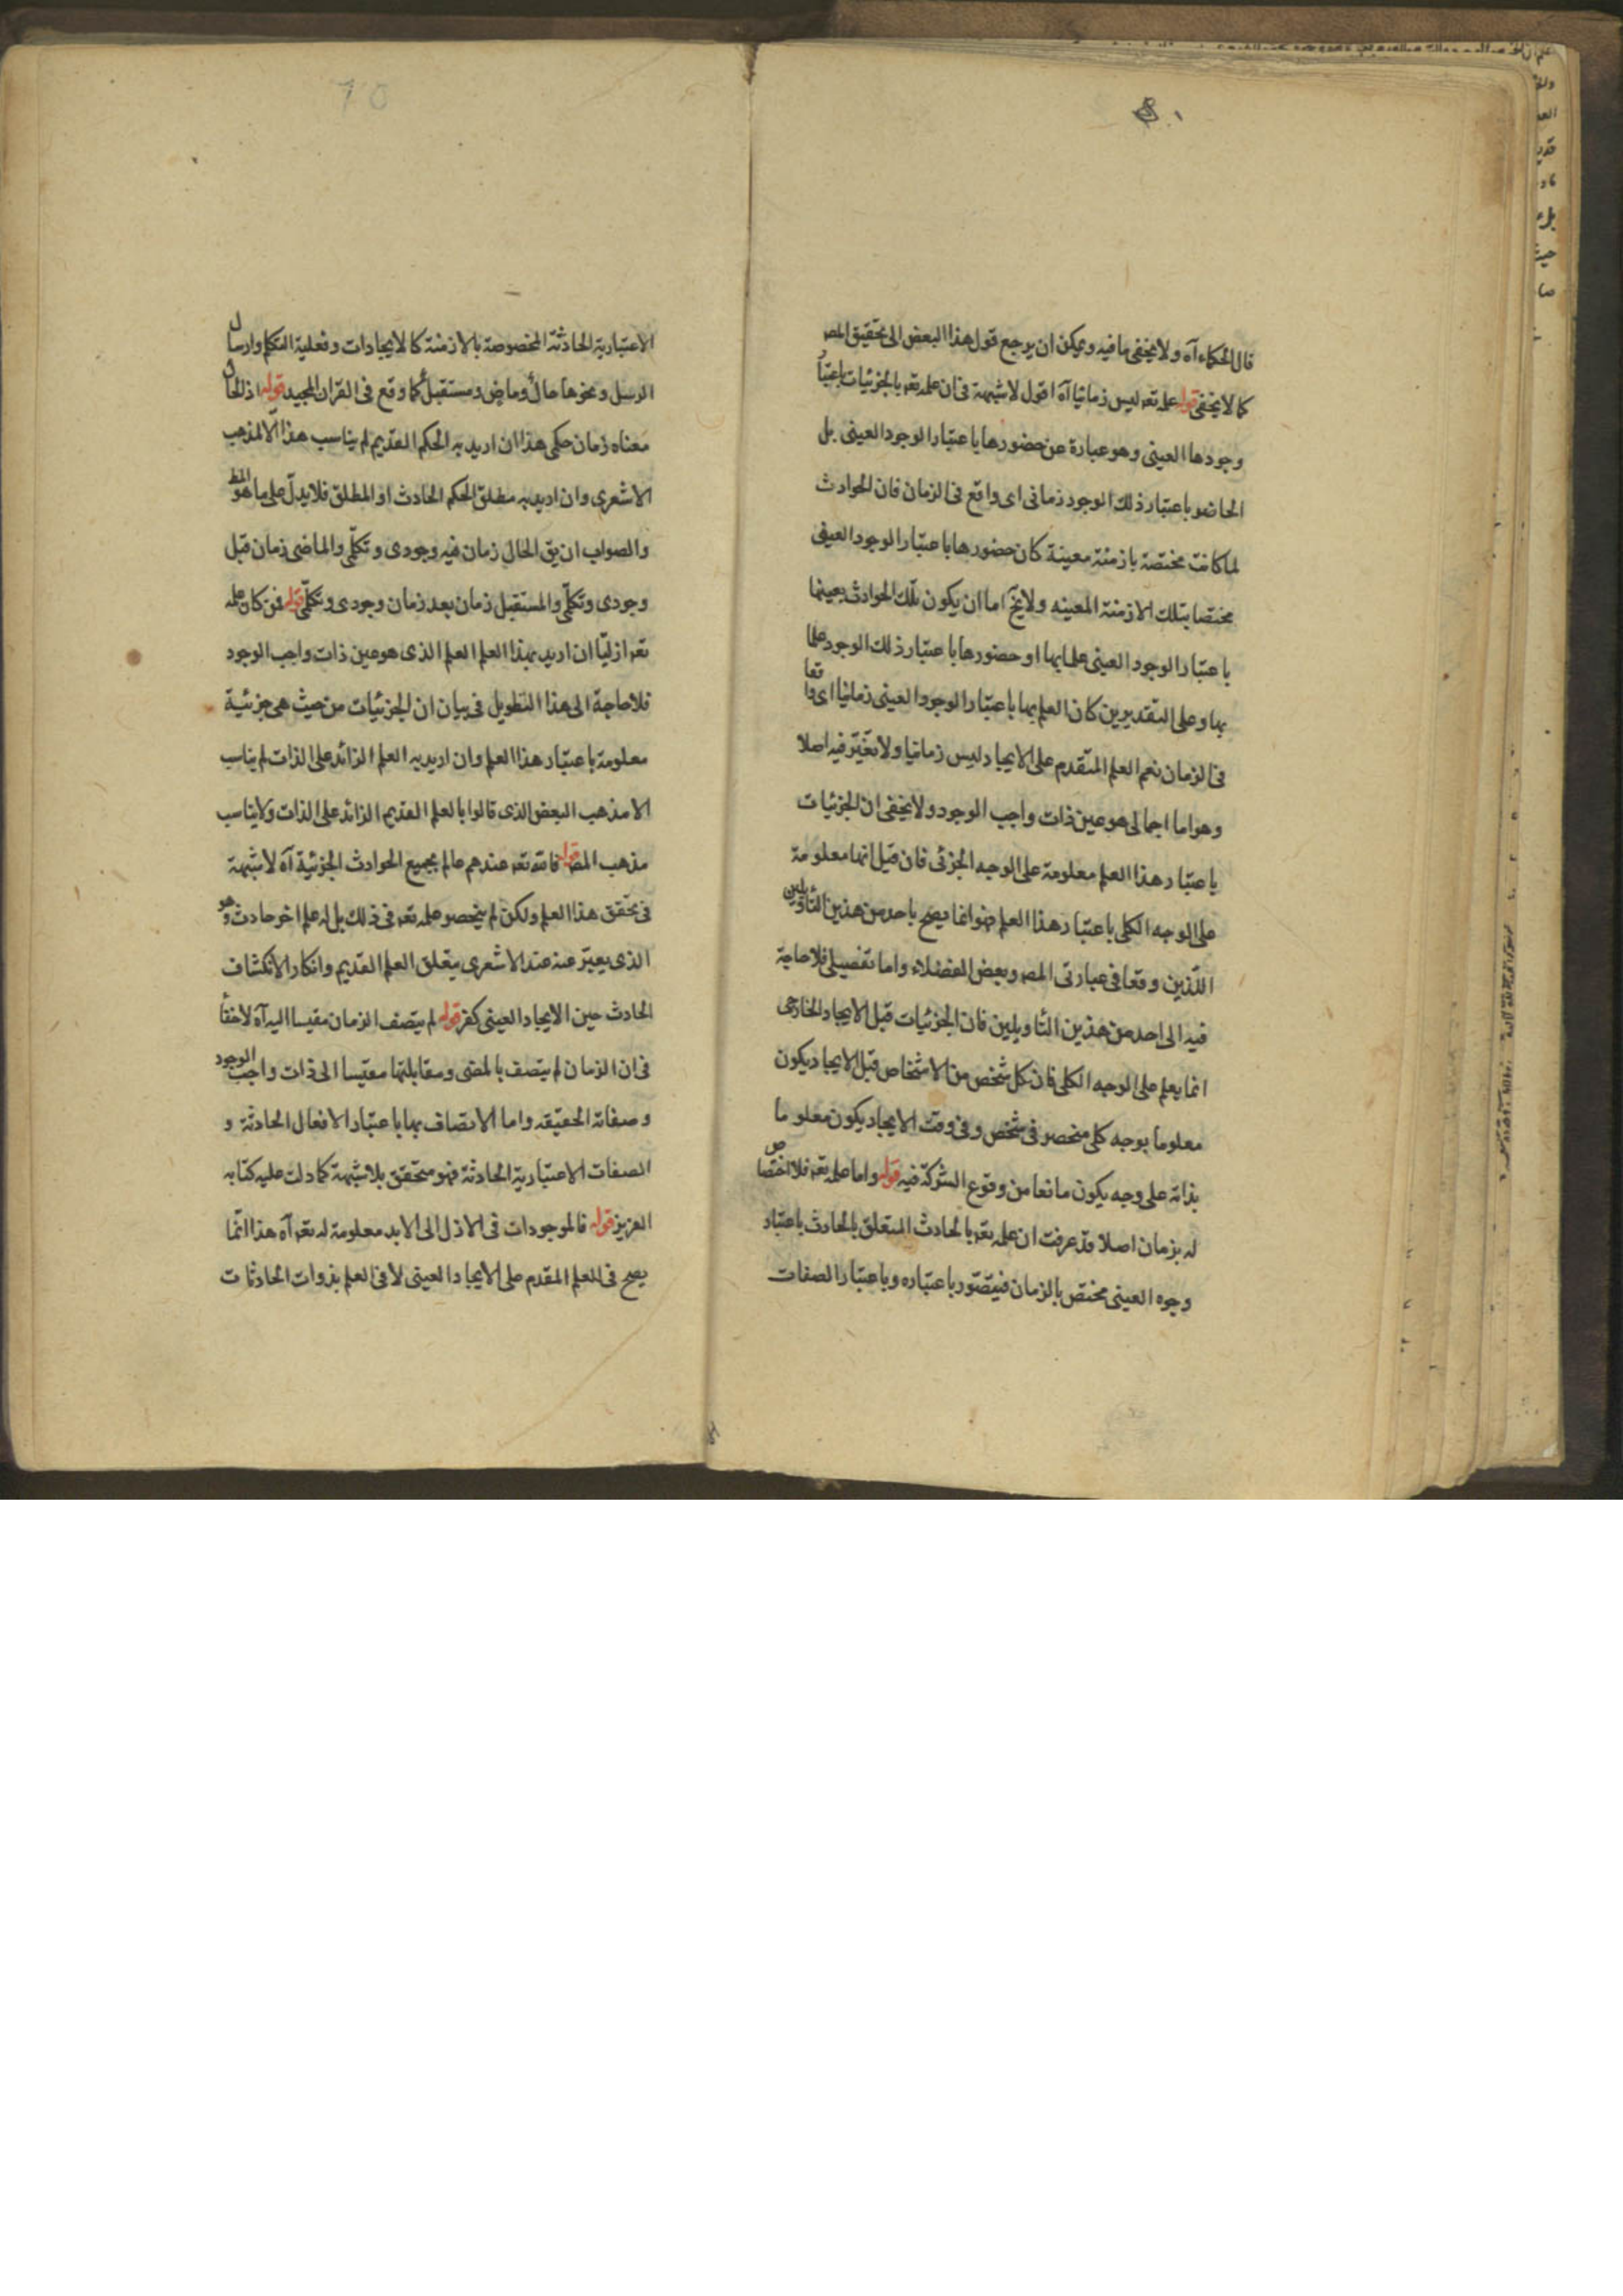 قال الحكماء آه ولا يخفى ما فيه ويمكن ان يرجع قول هذا البعض الى تحقيق المص
كما لا يخفى قوله علمه تعه ليس زمانيا آه اقول لا شبهة فى ان علمه تعه بالجزئيات باعتبار
وجودها العينى وهو عبارة عن حضورها باعتبار الوجود العينى بل
الحاضر باعتبار ذلك الوجود زمانى اى واقع فى الزمان فان الحوادث
لما كانت مختصة بازمنة معينة كان حضورها باعتبار الوجود العينى
مختصا بتلك الازمنة المعينه ولا يخ اما ان يكون تلك الحوادث بعينها
باعتبار الوجود العينى علما بها او حضورها باعتبار ذلك الوجود علما
بها وعلى التقديرين كان العلم بها باعتبار الوجود العينى زمانيا اى واقعا
فى الزمان نعم العلم المتقدم على الايجاد ليس زمانيا ولا تغيّر فيه اصلا
وهو اما اجمالى هو عين ذات واجب الوجود ولا يخفى ان الجزئيات
باعتبار هذا العلم معلومة على الوجه الجزئى فان قيل انها معلومة
على الوجه الكلى باعتبار هذا العلم فهو انما يصح باحد من هذين التأويلين
اللذين وقعا فى عبارتى المص وبعض الفضلاء واما تفصيلى فلا حاجة
فيه الى احد من هذين التأويلين فان الجزئيات قبل الايجاد الخارجى
انما يعلم على الوجه الكلى فان كل شخص من الاشخاص قبل الايجاد يكون
معلوما بوجه كلى منحصر فى شخص وفى وقت الايجاد يكون معلوما
بذاته على وجه يكون مانعا من وقوع الشركة فيه قوله واما علمه تعه فلا اختصاص
له بزمان اصلا قد عرفت ان علمه تعه بالحادث المتعلق بالحادث باعتبار
وجوه العينى مختص بالزمان فيتصّور باعتباره وباعتبار الصفات
الاعتبارية الحادثة المخصوصة بالازمنة كالايجادات وفعلية التكلم وارسال
الرسل ونحوها حال وماض ومستقبل كما وقع فى القرآن المجيد قوله اذ الحال
معناه زمان حكمى هذا ان اريد به الحكم القديم لم يناسب هذا الا لمذهب
الاشعرى وان اريد به مطلق الحكم الحادث او المطلق فلا يدلّ على ما هو المط
والصواب ان يق الحال زمان فيه وجودى وتكلّمى والماضى زمان قبل
وجودى وتكلّمى والمستقبل زمان بعد زمان وجودى وتكلّمى قوله فمن كان علمه
تعه ازليّا ان اريد بهذا العلم العلم الذى هو عين ذات واجب الوجود
فلا حاجة الى هذا التطويل فى بيان ان الجزئيات من حيث هى جزئية
معلومة باعتبار هذا العلم وان اريد به العلم الزائد على الذات لم يناسب
الا مذهب البعض الذى قالوا بالعلم القديم الزائد على الذات ولا يناسب
مذهب المص قوله فالله تعه عندهم عالم بجميع الحوادث الجزئية آه لا شبهة
فى تحقق هذا العلم ولكن لم ينحصر علمه تعه فى ذلك بل له علم اخر حادث وهو
الذى يعبّر عنه عند الاشعرى بتعلق العلم القديم وانكار الانكشاف
الحادث حين الايجاد العينى كفر قوله لم يتصف الزمان مقيسا اليه آه لا خفأ
فى ان الزمان لم يتصف بالمضى ومقابلتها مقيسا الى ذات واجب الوجود
وصفاته الحقيقه واما الاتصاف بها باعتبار الافعال الحادثة و
الصفات الاعتبارية الحادثة فهو متحقق بلا شبهة كما دلت عليه كتابه
العزيز قوله فالموجودات فى الازل الى الابد معلومة له تعه آه هذا انّما
يصح فى العلم المقدم على الايجاد العينى لا فى العلم بذوات الحادثات